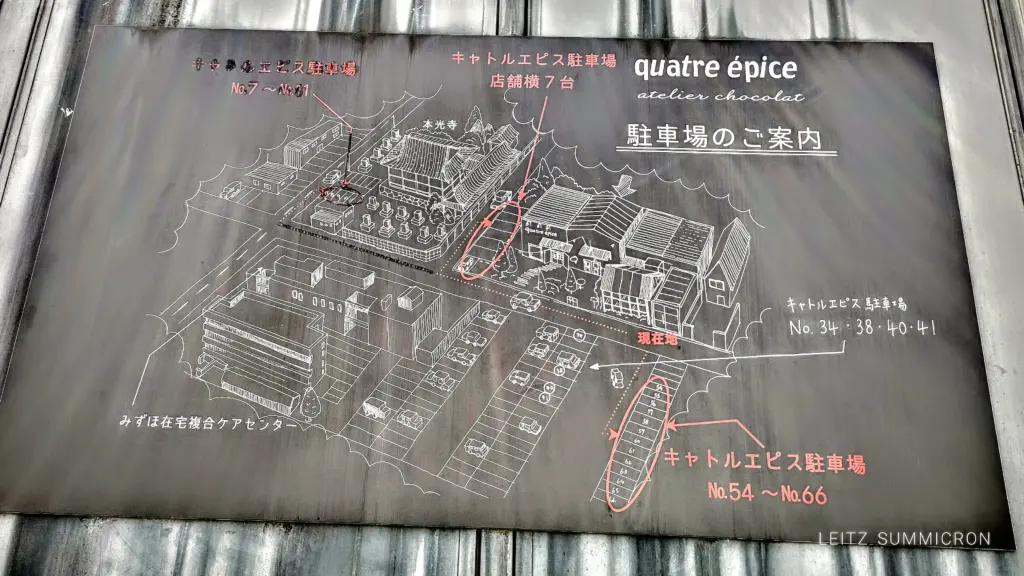 キャトルエピス駐車場
No.7 〜No.11
キャトルエピス駐車場
店舗横7台
quatre épice
atelier chocolat
駐車場のご案内
本光寺
quatre épice
キャトルエピス 駐車場
No. 34・38・40・41
現在地
みずほ在宅複合ケアセンター
キャトルエピス駐車場
No.54 〜No.66
LEITZ SUMMICRON